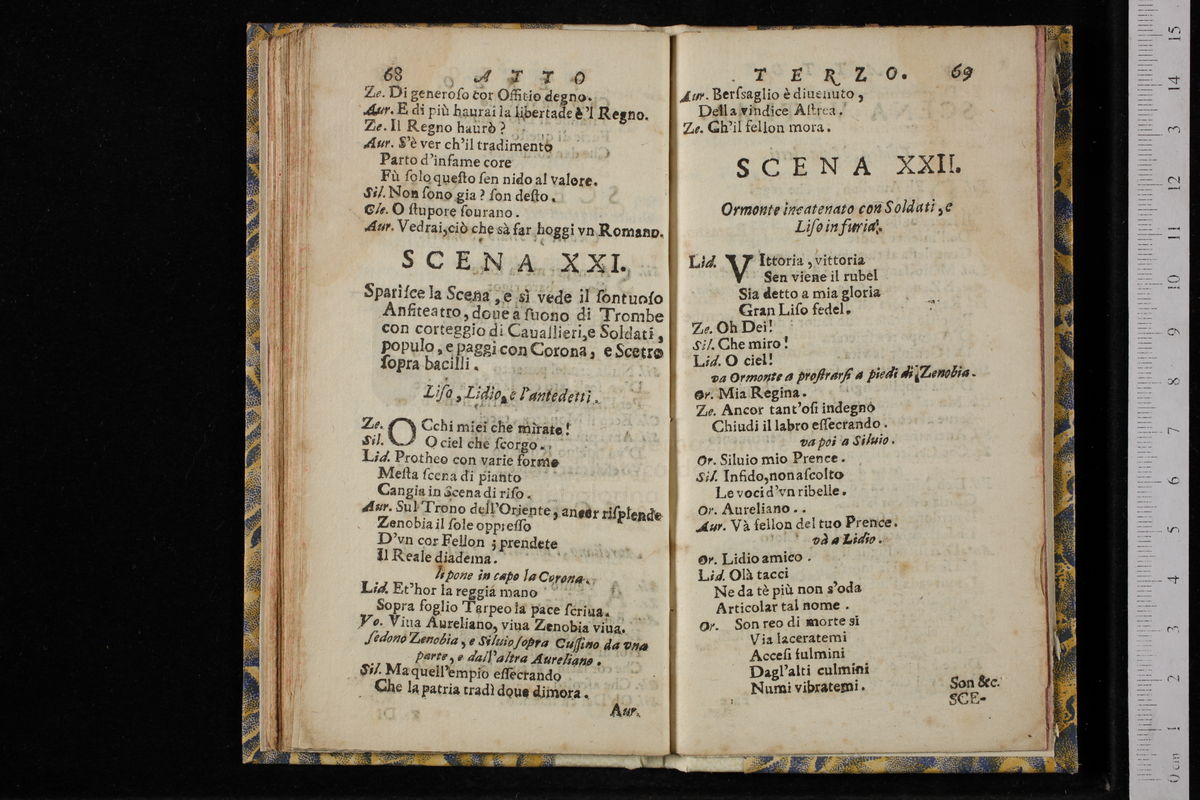 68 ATTO
Ze. Di generoſo cor Offitio degno.
Aur. E di più haurai la libertade è'l Regno.
Ze. Il Regno haurò ?
Aur. S'è ver ch'il tradimento
Parto d'infame core
Fù ſolo queſto ſen nido al valore.
Sil. Non ſono gia ? ſon deſto.
Cle. O ſtupore ſourano.
Aur. Vedrai, ciò che sà far hoggi vn Romano.
SCENA XXI.
Spariſce la Scena, e sì vede il ſontuoſo
Anfiteatro, doue à ſuono di Trombe
con corteggio di Cauallieri, e Soldati,
populo, e paggi con Corona, e Scetro
ſopra bacilli.
Liſo, Lidio, e l'antedetti.
Ze. OCchi miei che mirate!
Sil. O ciel che ſcorgo.
Lid. Protheo con varie forme
Meſta ſcena di pianto
Cangia in Scena di riſo.
Aur. Sul Trono dell'Oriente, ancor riſplende
Zenobia il ſole oppreſſo
D'vn cor Fellon ; prendete
Il Reale diadema.
li pone in capo la Corona.
Lid. Et'hor la reggia mano
Sopra foglio Tarpeo la pace ſcriua.
Vo. Viua Aureliano, viua Zenobia viua.
ſedono Zenobia, e Siluio ſopra Cuſſino da vna
parte, e dall'altra Aureliano.
Sil. Ma quell'empio eſſecrando
Che la patria tradì doue dimora.
Aur.
TERZO. 69
Aur. Berſaglio è diuenuto,
Della vindice Aſtrea.
Ze. Ch'il fellon mora.
SCENA XXII.
Ormonte incatenato con Soldati, e
Liſo in furia.
Lid. VIttoria, vittoria
Sen viene il rubel
Sia detto a mia gloria
Gran Liſo fedel.
Ze. Oh Dei!
Sil. Che miro!
Lid. O ciel!
va Ormonte a proſtrarſi a piedi di Zenobia.
Or. Mia Regina.
Ze. Ancor tant'oſi indegno
Chiudi il labro eſſecrando.
va poi a Siluio.
Or. Siluio mio Prence.
Sil. Infido, non aſcolto
Le voci d'vn ribelle.
Or. Aureliano..
Aur. Và fellon del tuo Prence.
và a Lidio.
Or. Lidio amico.
Lid. Olà tacci
Ne da tè più non s'oda
Articolar tal nome.
Or. Son reo di morte si
Via laceratemi
Acceſi fulmini
Dagl'alti culmini
Numi vibratemi.
Son &c.
SCE-
0 cm 1 2 3 4 5 6 7 8 9 10 11 12 13 14 15